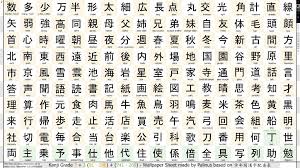 数多少万半形太細広長点丸交光角計直線
矢弱強高同親母父姉兄弟妹自友体毛頭顔
首心時曜朝昼夜分週春夏秋冬今新古間方
北南東西遠近前後内外場地国園谷野原里
市京風雪雲池海岩星室戸家寺通門道話言
答声聞語読書記紙画絵図工教晴思考知才
理算作元食肉馬牛魚鳥羽鳴麦米茶色黄黒
来行帰歩走止活店買売午汽弓回会組船明
社切電毎合当台楽公引科歌刀番用何丁世
両主乗予事仕他代住使係倍全
Wallpaper Sheet made by